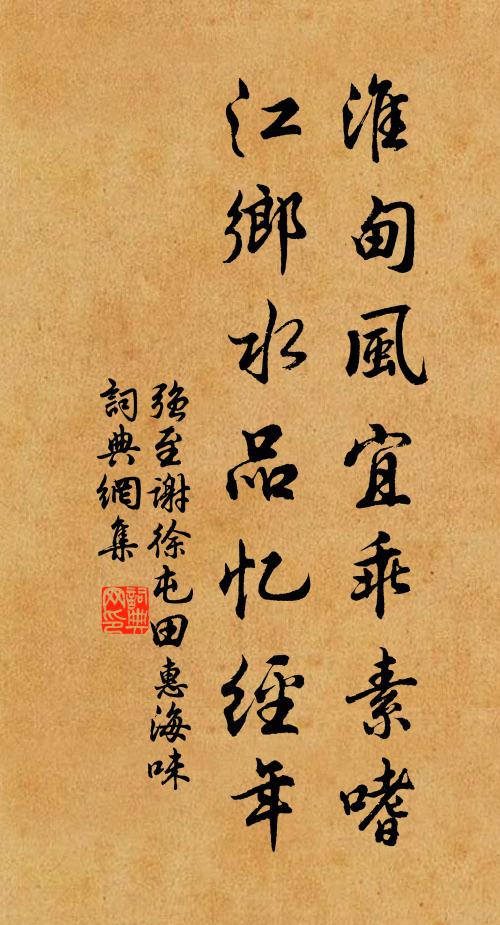 淮甸風宜乖素嗜
江鄉水品忆經年
強至謝徐屯田惠海味
詞典網集
詞典网印